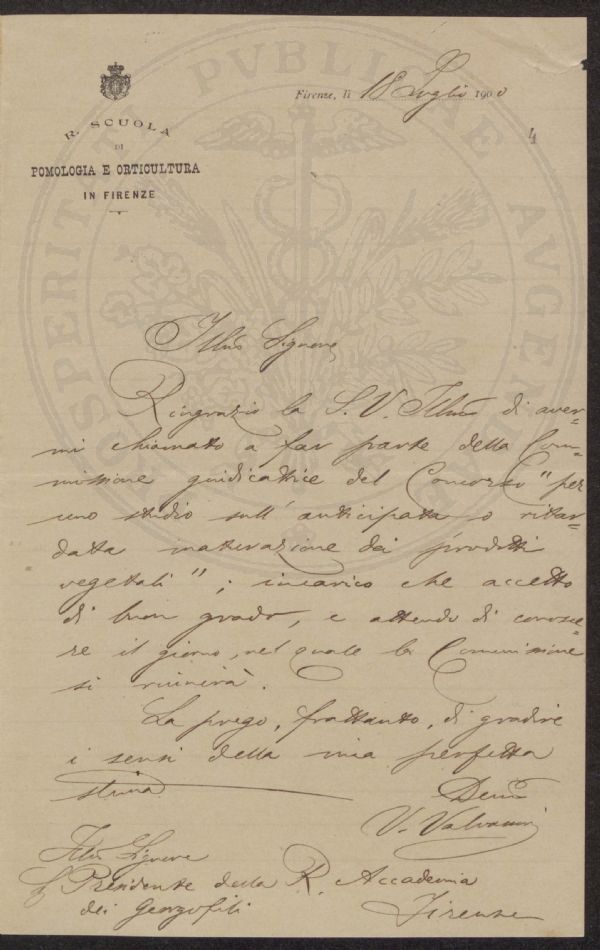 Firenze, li 18 Luglio 1900
4
R. SCUOLA
DI
POMOLOGIA E ORTICULTURA
IN FIRENZE
PROSPERITATI PVBLICAE AVGENDAE
Illmo Signore
Ringrazio la S. V. Illma di aver=
mi chiamato a far parte della Com=
missione giudicatrice del Concorso "per
uno studio sull'anticipata o ritar=
data maturazione dei prodotti
vegetali"; incarico che accetto
di buon grado, e attendo di conosce=
re il giorno, nel quale la Commissione
si riunirà.
La prego, frattanto, di gradire
i sensi della mia perfetta
stima
Devmo
V. Valvassori
Illmo Signore
Il Presidente della R. Accademia
dei Georgofili
Firenze